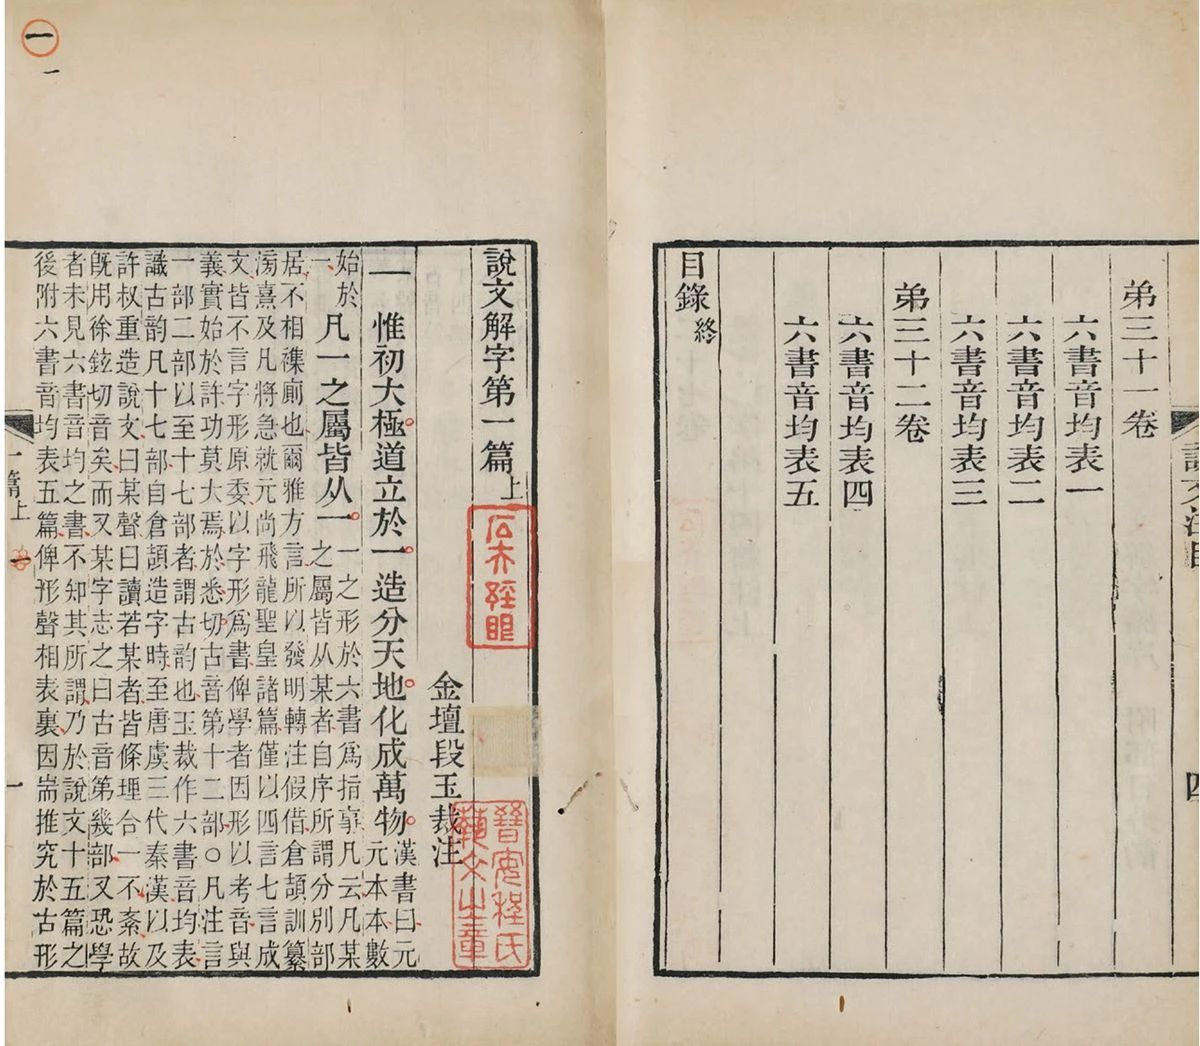 弟三十一卷
六書音均表一
六書音均表二
六書音均表三
弟三十二卷
六書音均表四
六書音均表五
目錄終
說文解字第一篇上
金壇段玉裁注
一
惟初大極。道立於一。造分天地。化成萬物。漢書曰元
元本本數
始於
一凡一之屬皆从一。一之形於六書爲指事凡云凡某
之屬皆从某者自序所謂分別部
居不相襍廁也爾雅方言所以發明轉注假借倉頡訓纂
滂熹及凡將急就元尚飛龍聖皇諸篇僅以四言七言成
文皆不言字形原委以字形爲書俾學者因形以考音與
義實始於許功莫大焉於悉切古音第十二部○凡注言
一部二部以至十七部者謂古韵也玉裁作六書音均表
識古韵凡十七部自倉頡造字時至唐虞三代秦漢以及
許叔重造說文曰某聲曰讀若某者皆條理合一不紊故
既用徐鉉切音矣而又某字志之曰古音第幾部又恐學
者未見六書音均之書不知其所謂乃於說文十五篇之
後附六書音均表五篇俾形聲相表裏因耑推究於古形
一篇上
一